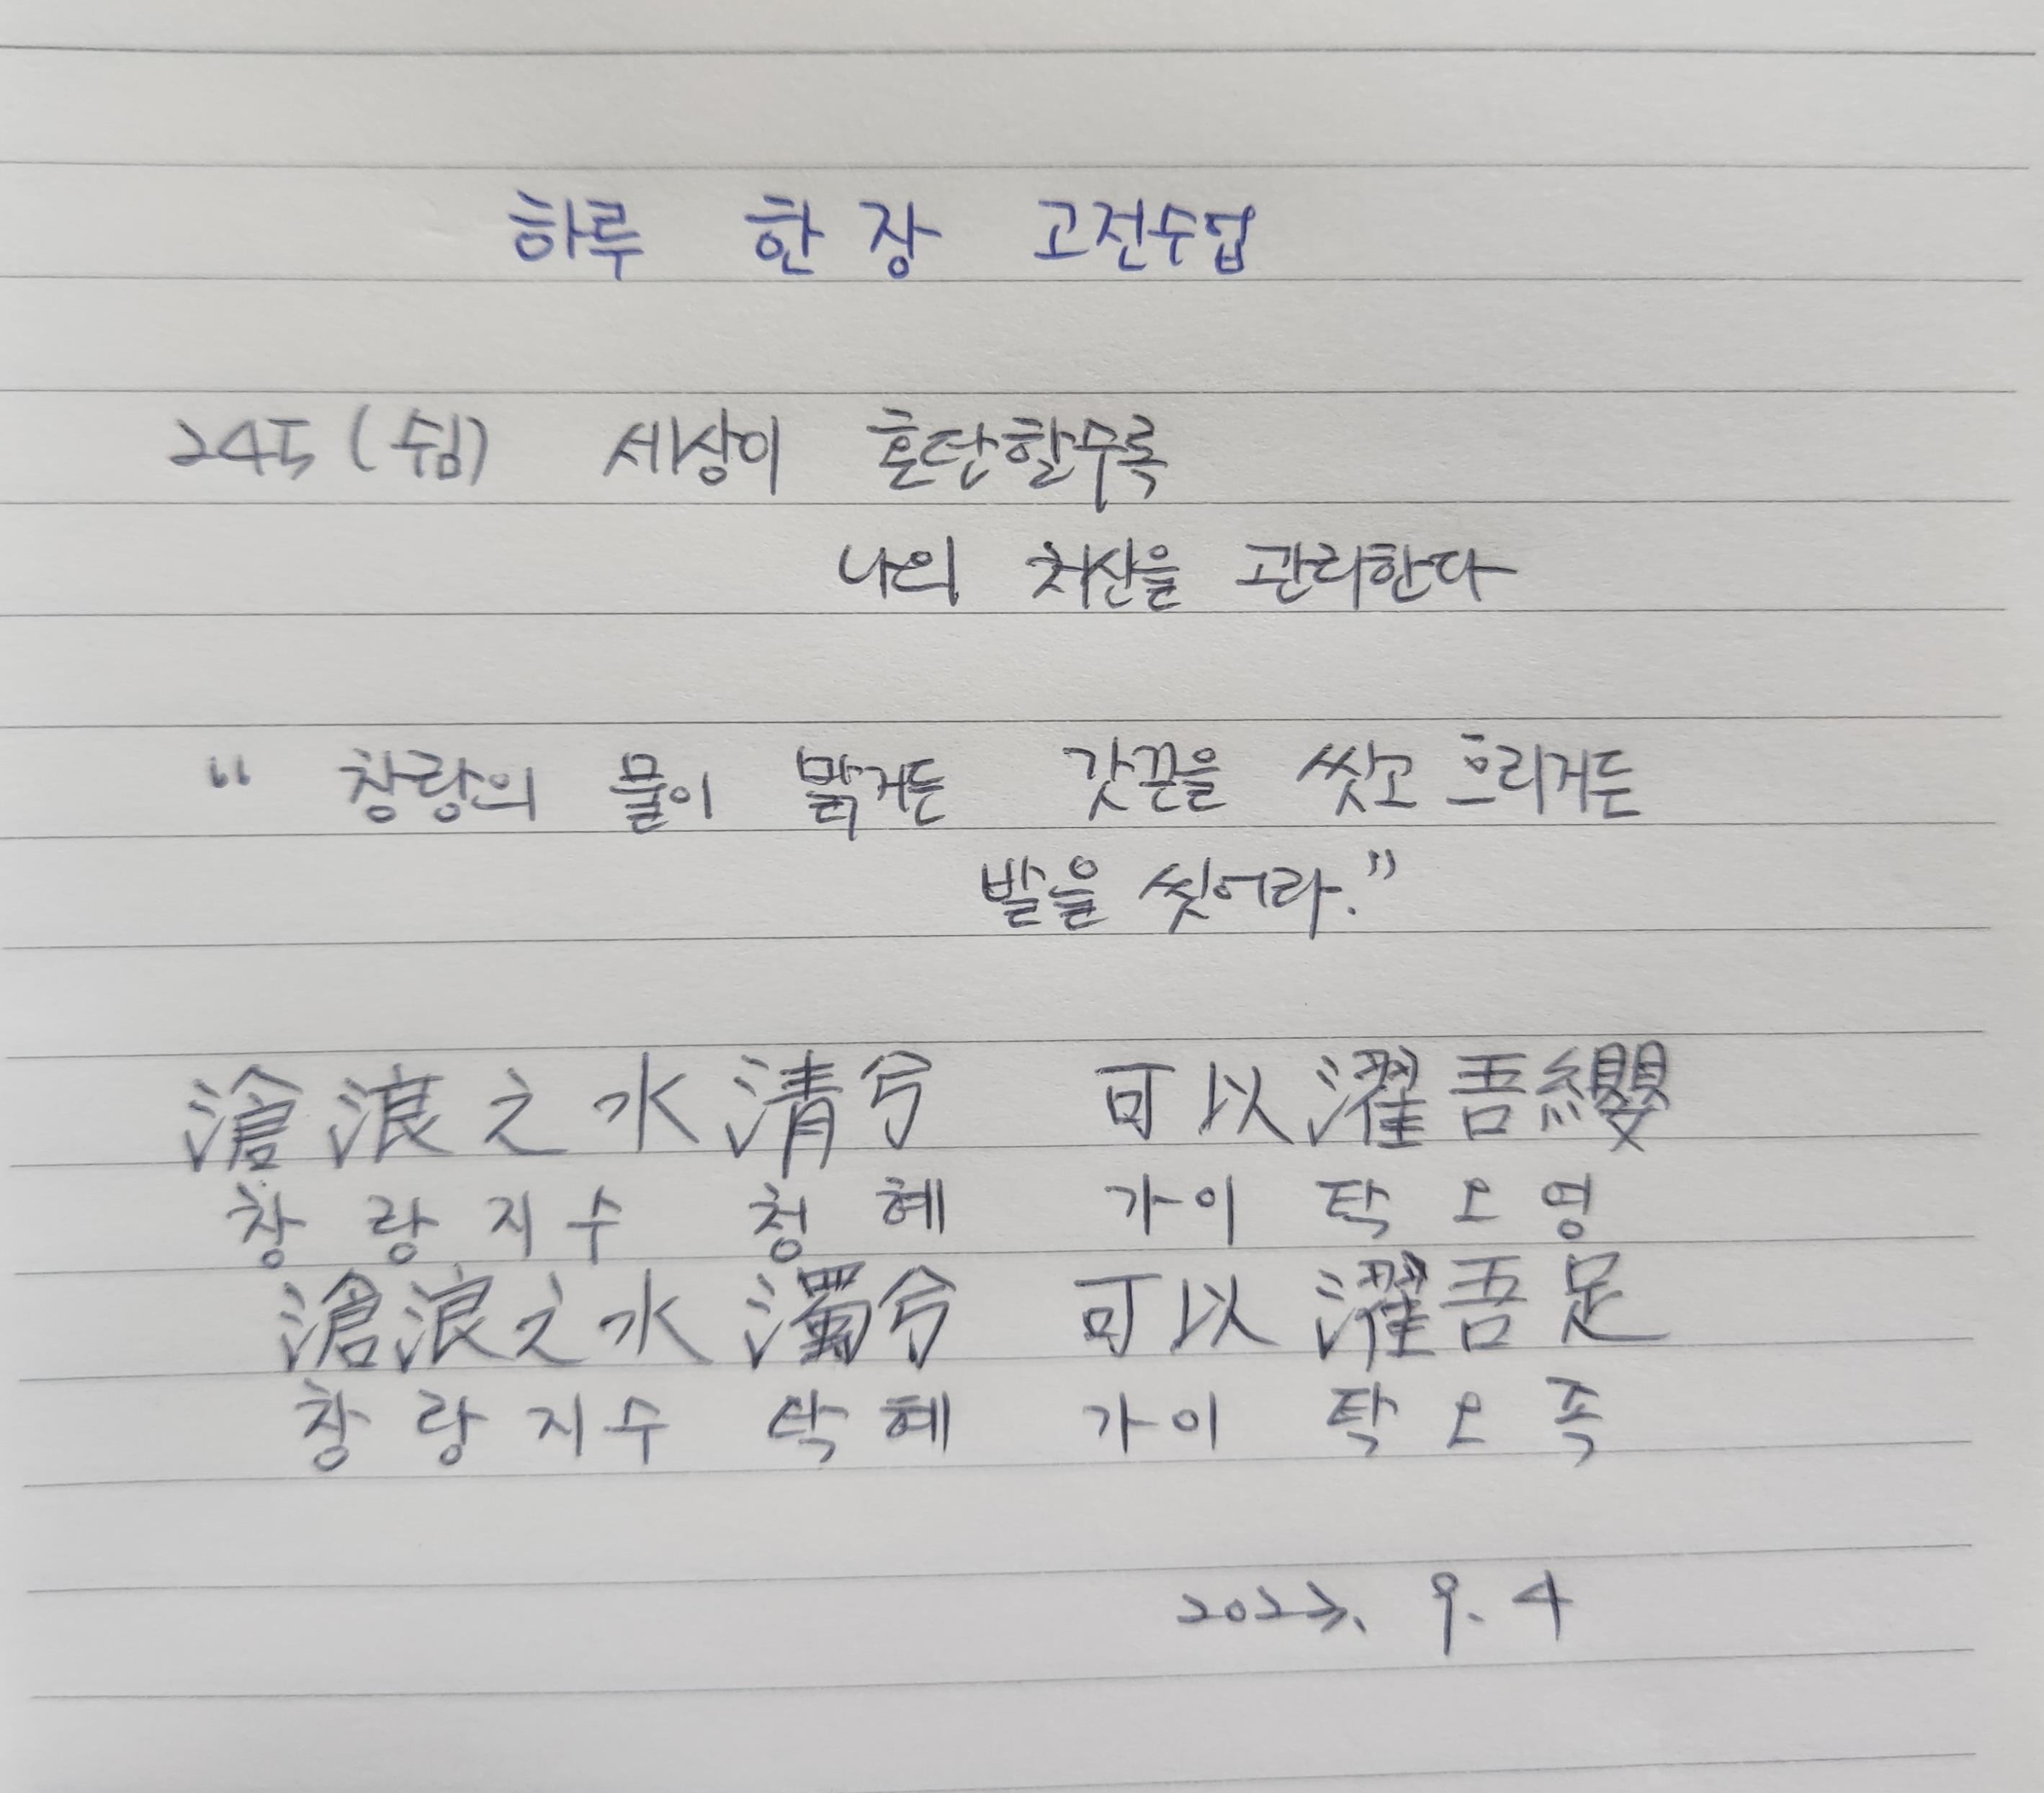 하루 한 장 고전수업
245 (쉼) 세상이 혼탁할수록
나의 처신을 관리한다
“ 창랑의 물이 맑거든 갓끈을 씻고 흐리거든
발을 씻어라.”
滄浪之水清兮 可以濯吾纓
창 랑 지 수 청 혜 가 이 탁 오 영
滄浪之水濁兮 可以濯吾足
창 랑 지 수 탁 혜 가 이 탁 오 족
2023. 9. 4